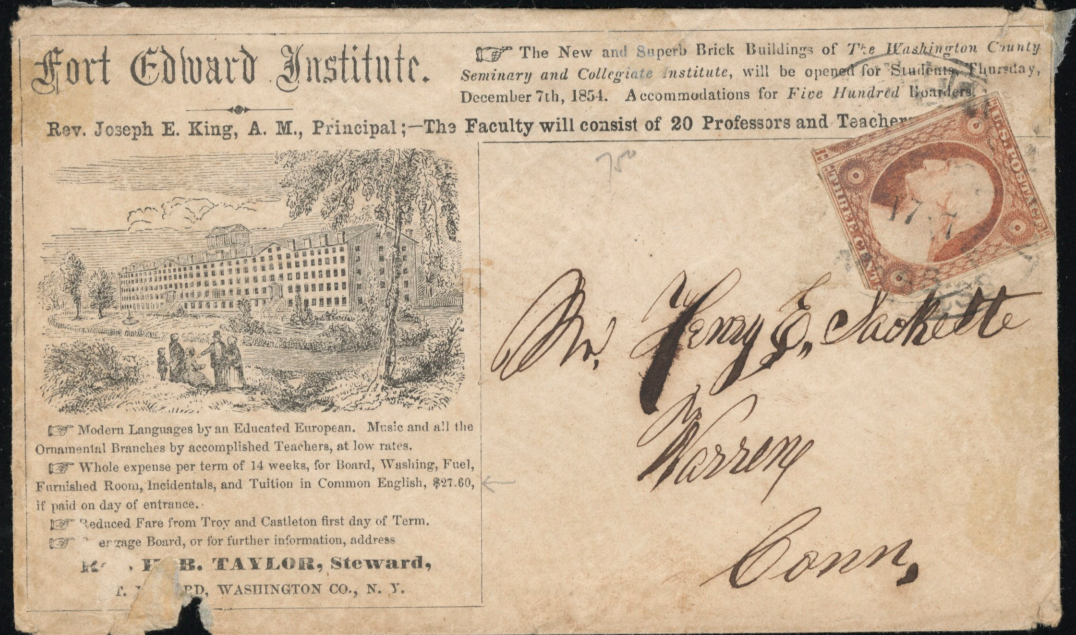 Fort Edward Institute.
☞ The New and Superb Brick Buildings of The Washington County
Seminary and Collegiate Institute, will be opened for Students, Thursday,
December 7th, 1854. Accommodations for Five Hundred Boarders.
Rev. Joseph E. King, A. M., Principal;—The Faculty will consist of 20 Professors and Teacher
750
U.S. POSTAGE
THREE CENTS
☞ Modern Languages by an Educated European. Music and all the
Ornamental Branches by accomplished Teachers, at low rates.
☞ Whole expense per term of 14 weeks, for Board, Washing, Fuel,
Furnished Room, Incidentals, and Tuition in Common English, $27.60,
if paid on day of entrance.
☞ Reduced Fare from Troy and Castleton first day of Term.
☞ Board, or for further information, address
B. TAYLOR, Steward,
WASHINGTON CO., N. Y.
Mr. Henry E. Sackette
Warren
Conn,